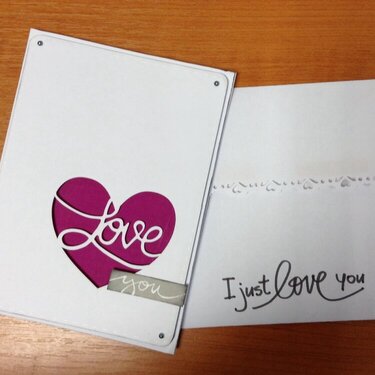 Love
you
I just love you